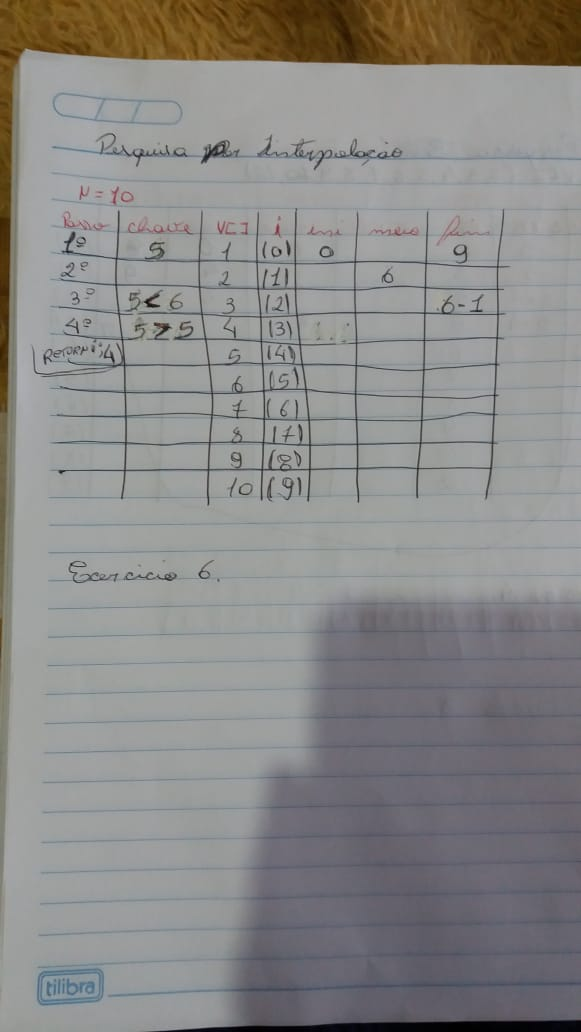 Pesquisa por Interpolação
N = 10
Passo chave V[] i ini meio fim
1º 5 1 (0) 0 9
2º 2 (1) 6
3º 5 < 6 3 (2) 6-1
4º 5 > 5 4 (3)
RETORNA 4 5 (4)
6 (5)
7 (6)
8 (7)
9 (8)
10 (9)
Exercicio 6.
tilibra